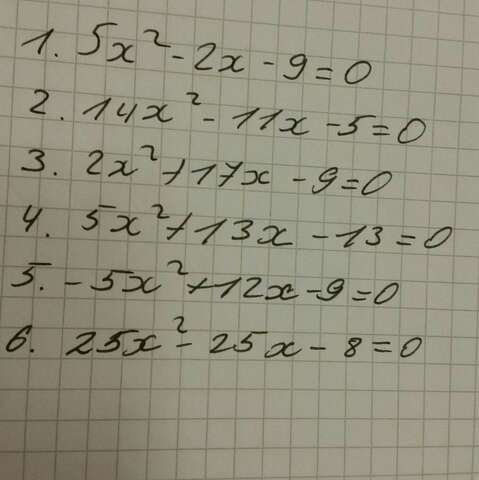 1. 5x² - 2x - 9 = 0
2. 14x² - 11x - 5 = 0
3. 2x² + 17x - 9 = 0
4. 5x² + 13x - 13 = 0
5. - 5x² + 12x - 9 = 0
6. 25x² - 25x - 8 = 0